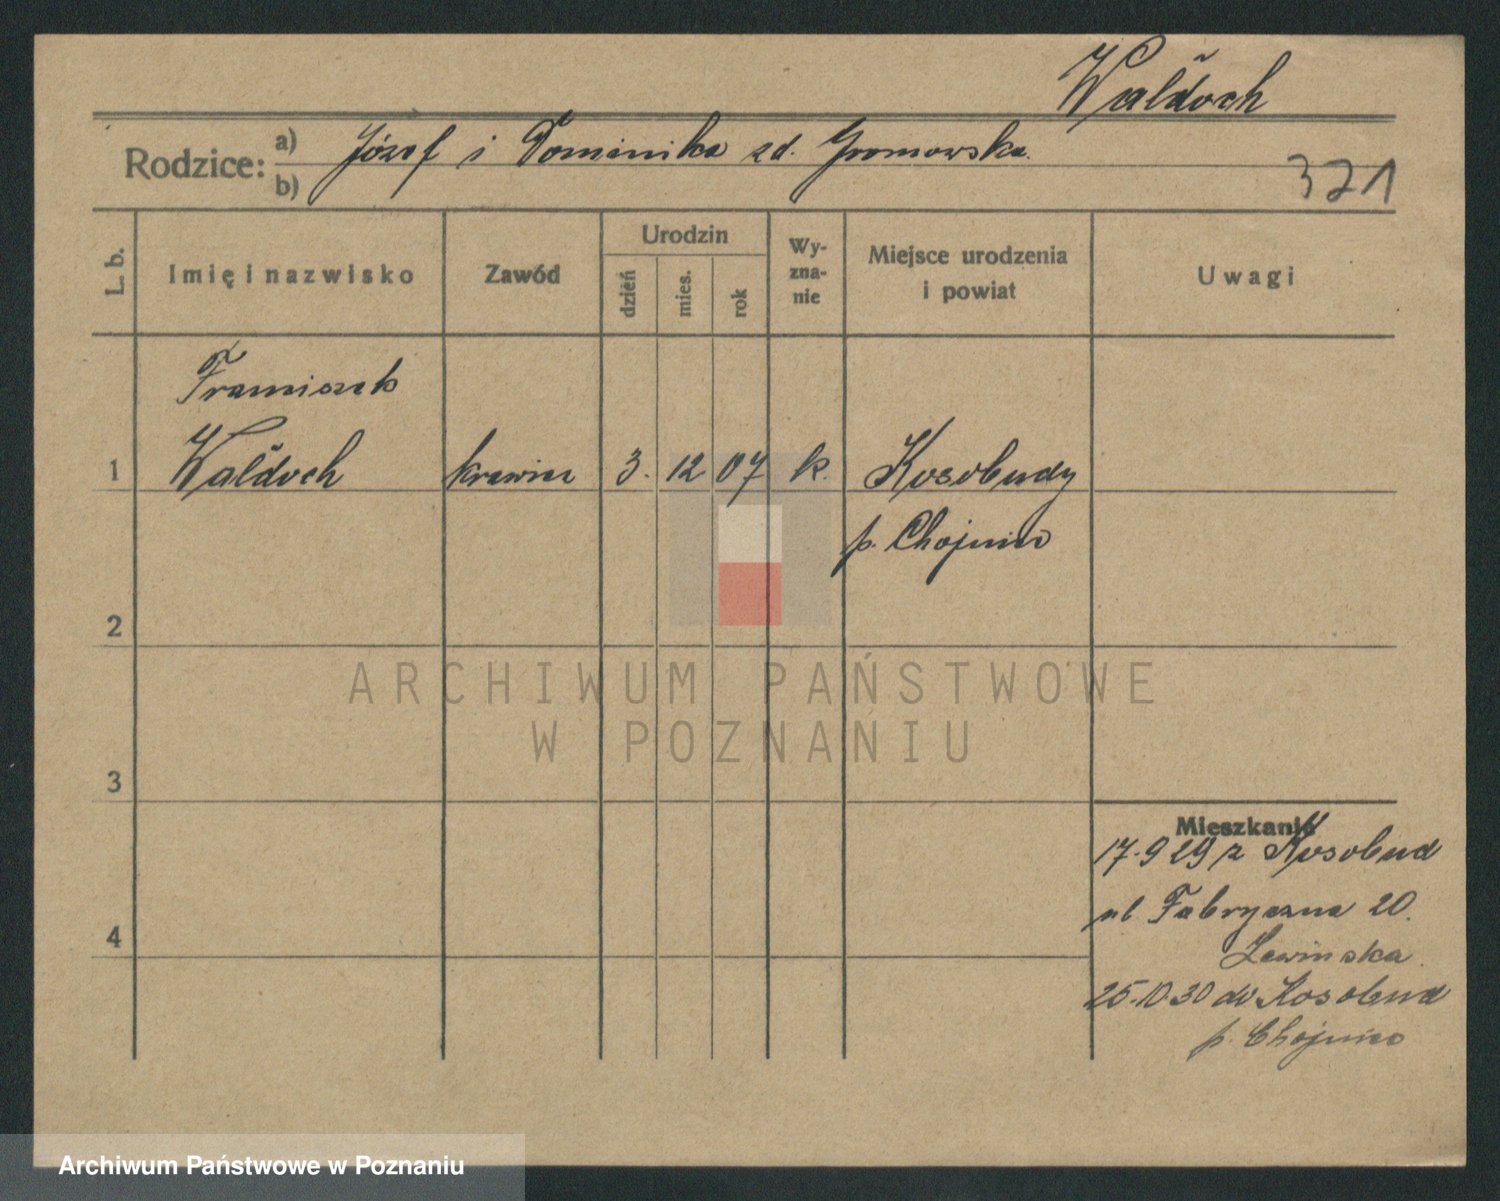 Wałdoch
Rodzice: a) Józef i Dominika zd. Gromowska.
b)
321
L. b.
Imię i nazwisko
Zawód
Urodzin
dzień
mies.
rok
Wy-
zna-
nie
Miejsce urodzenia
i powiat
Uwagi
Franciszek
1 Wałdoch krawiec 3. 12 07 k. Kosobudy
p. Chojnice
2
ARCHIWUM PAŃSTWOWE
W POZNANIU
3
Mieszkanie
17.9 29 z Kosobud
ul Fabryczna 20.
4
Lewińska
25.10.30 do Kosobud
p. Chojnice
Archiwum Państwowe w Poznaniu